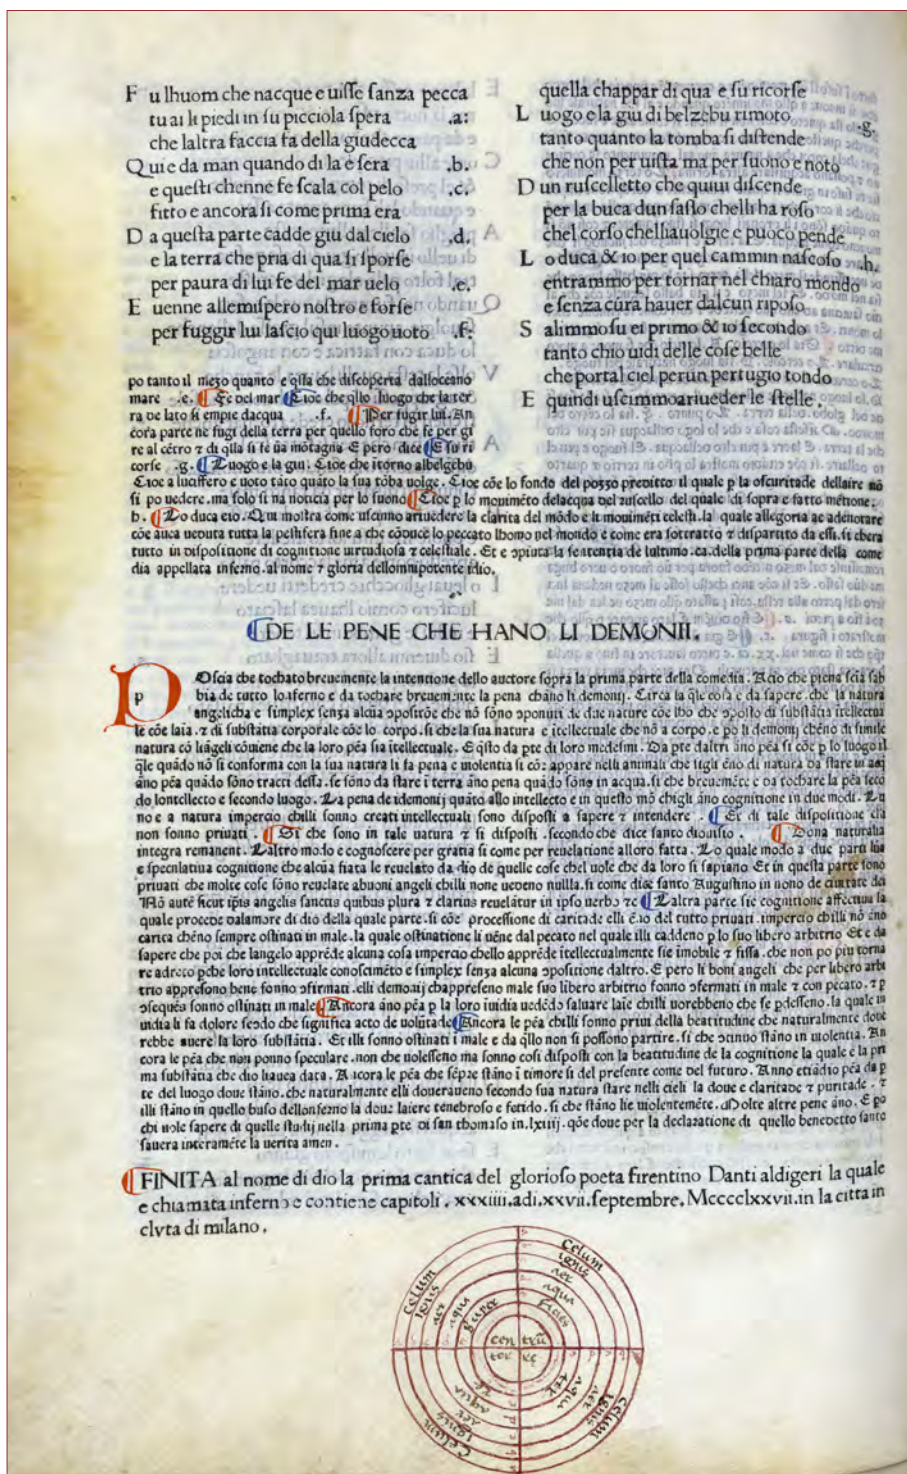 F u lhuom che nacque e uisse sanza pecca
tu ai li piedi in su picciola spera .a:
che laltra faccia fa della giudecca
Q ui e da man quando di la e sera .b.
e questi chenne fe scala col pelo .c.
fitto e ancora si come prima era
D a questa parte cadde giu dal cielo .d.
e la terra che pria di qua si sporse
per paura di lui fe del mar uelo .e.
E uenne allemispero nostro e forse
per fuggir lui lascio qui luogo uoto .f.
quella chappar di qua e su ricorse
L uogo e la giu di belzebu rimoto .g.
tanto quanto la tomba si distende
che non per uista ma per suono e noto
D un ruscelletto che quiui discende
per la buca dun sasso chelli ha roso
chel corso chelliauolgie e puoco pende
L o duca & io per quel cammin nascoso .h.
entrammo per tornar nel chiaro mondo
e senza cura hauer dalcun riposo
S alimmo su ei primo & io secondo
tanto chio uidi delle cose belle
che portal ciel per un pertugio tondo
E quindi uscimmo ariueder le stelle .
po tanto il mezo quanto e q̄lla che discoperta dalloceano
mare .e. Fe del mar Cioe che q̄llo luogo che la ter
ra de lato si empie dacqua .f. Per fugir lui. An
cora parte ne fugi della terra per quello foro che fe per gi
re al cētro ⁊ di q̄lla si fe ūa mōtagna E pero dice E su ri
corse .g. Luogo e la giu. Cioe che itorno albelgebu
Cioe a luciffero e uoto tāto quāto la sua tōba uolge. Cioe cōe lo fondo del pozzo preditto il quale p la oscuritade dellaire nō
si po uedere. ma solo si na noticia per lo suono Cioe p lo mouimēto delacqua del ruscello del quale di sopra e fatto mētione.
b. Lo duca etio. Qui mostra come uscinno ariuedere la clarita del mōdo e li mouimēti celesti. la quale allegoria ae adenotare
cōe auea ueduta tutta la pestifera fine a che cōduce lo peccato lhomo nel mondo e come era sottratto ⁊ dispartito da essi. si chera
tutto in dispositione di cognitione uirtudiosa ⁊ celestiale. Et e ɔpiuta la sententia de lultimo .ca. della prima parte della come
dia appellata inferno. al nome ⁊ gloria dellomnipotente idio.
DE LE PENE CHE HANO LI DEMONII.
P Oscia che tochato breuemente la intentione dello auctore sopra la prima parte della comedia. Acio che piena scia sab
bia de tutto lo inferno e da tochare breuemente la pena chāno li demonij. Circa la q̄le cosa e da sapere. che la natura
angelicha e simplex senza alcūa ɔpositōe che nō sōno ɔponuti de due nature cōe lho che ɔposto di substātia itellectua
le cōe laīa. ⁊ di substātia corporale cōe lo corpo. si che la sua natura e itellectuale che nō a corpo. e po li demonij chēno di simile
natura cō liāgeli cōuiene che la loro pēa sia itellectuale. E q̄sto da pte di loro medesmi. Da pte daltri āno pēa si cōe p lo luogo il
q̄le quādo nō si conforma con la sua natura li fa pena e uiolentia si cōe appare nelli animali che sigli ēno di natura da stare in aeq
āno pēa quādo sōno tracti dessa. se sōno da stare ī terra āno pena quādo sōno in acqua. si che breuemēte e da tochare la pēa seco
do lontellecto e secondo luogo. La pena de idemonij quāto allo intellecto e in questo mō chigli āno cognitione in due modi. Lu
no e a natura impercio chilli sonno creati intellectuali sono disposti a sapere ⁊ intendere . Et di tale dispositione ella
non sonno priuati . Si che sono in tale natura ⁊ si disposti .secondo che dice santo dionisio . Dona naturalia
integra remanent. Laltro modo e cognoscere per gratia si come per reuelatione alloro fatta. Lo quale modo a due parti lūa
e speculatiua cognitione che alcūa fiata le reuelato da dio de quelle cose chel uole che da loro si sapiano Et in questa parte sono
priuati che molte cose sōno reuelate abuoni angeli chilli none uedeno nullla. si come dice santo Augustino in nono de ciuitate dei
Nō autē sicut ip̄is angelis sanctis quibus plura ⁊ clarius reuelātur in ipso uerbo ⁊c Laltra parte sie cognitione affectiua la
quale procede dalamore di dio della quale parte. si cōe processione di caritade elli ēno del tutto priuati. impercio chilli nō āno
carita chēno sempre ostinati in male. la quale ostinatione li uēne dal pecato nel quale illi caddeno p lo suo libero arbitrio Et e da
sapere che poi che langelo apprēde alcuna cosa impercio chello apprēde itellectualmente sie imobile ⁊ fissa. che non po piu torna
re adreto pche loro intellectuale conoscimēto e simplex senza alcuna ɔpositione daltro. E pero li boni angeli che per libero arbi
trio appresono bene sonno ɔfirmati. elli demonij chappreseno male suo libero arbitrio sonno ɔfermati in male ⁊ con pecato. ⁊ p
ɔsequēs sonno ostinati in male Ancora āno pēa p la loro iuidia uedēdo saluare laīe chilli uorebbeno che se pdesseno. la quale in
uidia li fa dolore secdo che significa acto de uolūtade Ancora le pēa chilli sonno priui della beatitudine che naturalmente doue
rebbe auere la loro substātia. Et illi sonno ostinati ī male e da q̄llo non si possono partire. si che ɔtinuo stāno in uiolentia. An
cora le pēa che non ponno speculare. non che uolesseno ma sonno cosi disposti con la beatitudine de la cognitione la quale e la pri
ma substātia che dio haueа data. Ancora le pēa che sēpre stāno ī timore si del presente come del futuro. Anno etiādio pēa da p
te del luogo doue stāno. che naturalmente elli doueraueno secondo sua natura stare nelli cieli la doue e claritade ⁊ puritade . ⁊
illi stāno in quello buso dellonferno la doue laiere tenebroso e fetido. si che stāno lie uiolentemēte. Molte altre pene āno. E po
chi uole sapere di quelle studij nella prima pte di san thomaso in.lxiiij. q̄ōe doue per la declaratione di quello benedetto santo
sauera interamēte la uerita amen .
FINITA al nome di dio la prima cantica del glorioso poeta firentino Danti aldigeri la quale
e chiamata inferno e contiene capitoli . xxxiiii. adi. xxvii. septembre. Mcccclxxvii. in la citta in
clyta di milano .
Celum Celum
ignis ignis
aer aer
aqua aqua
centrū
aqua aqua
aer aer
ignis ignis
Celum Celum